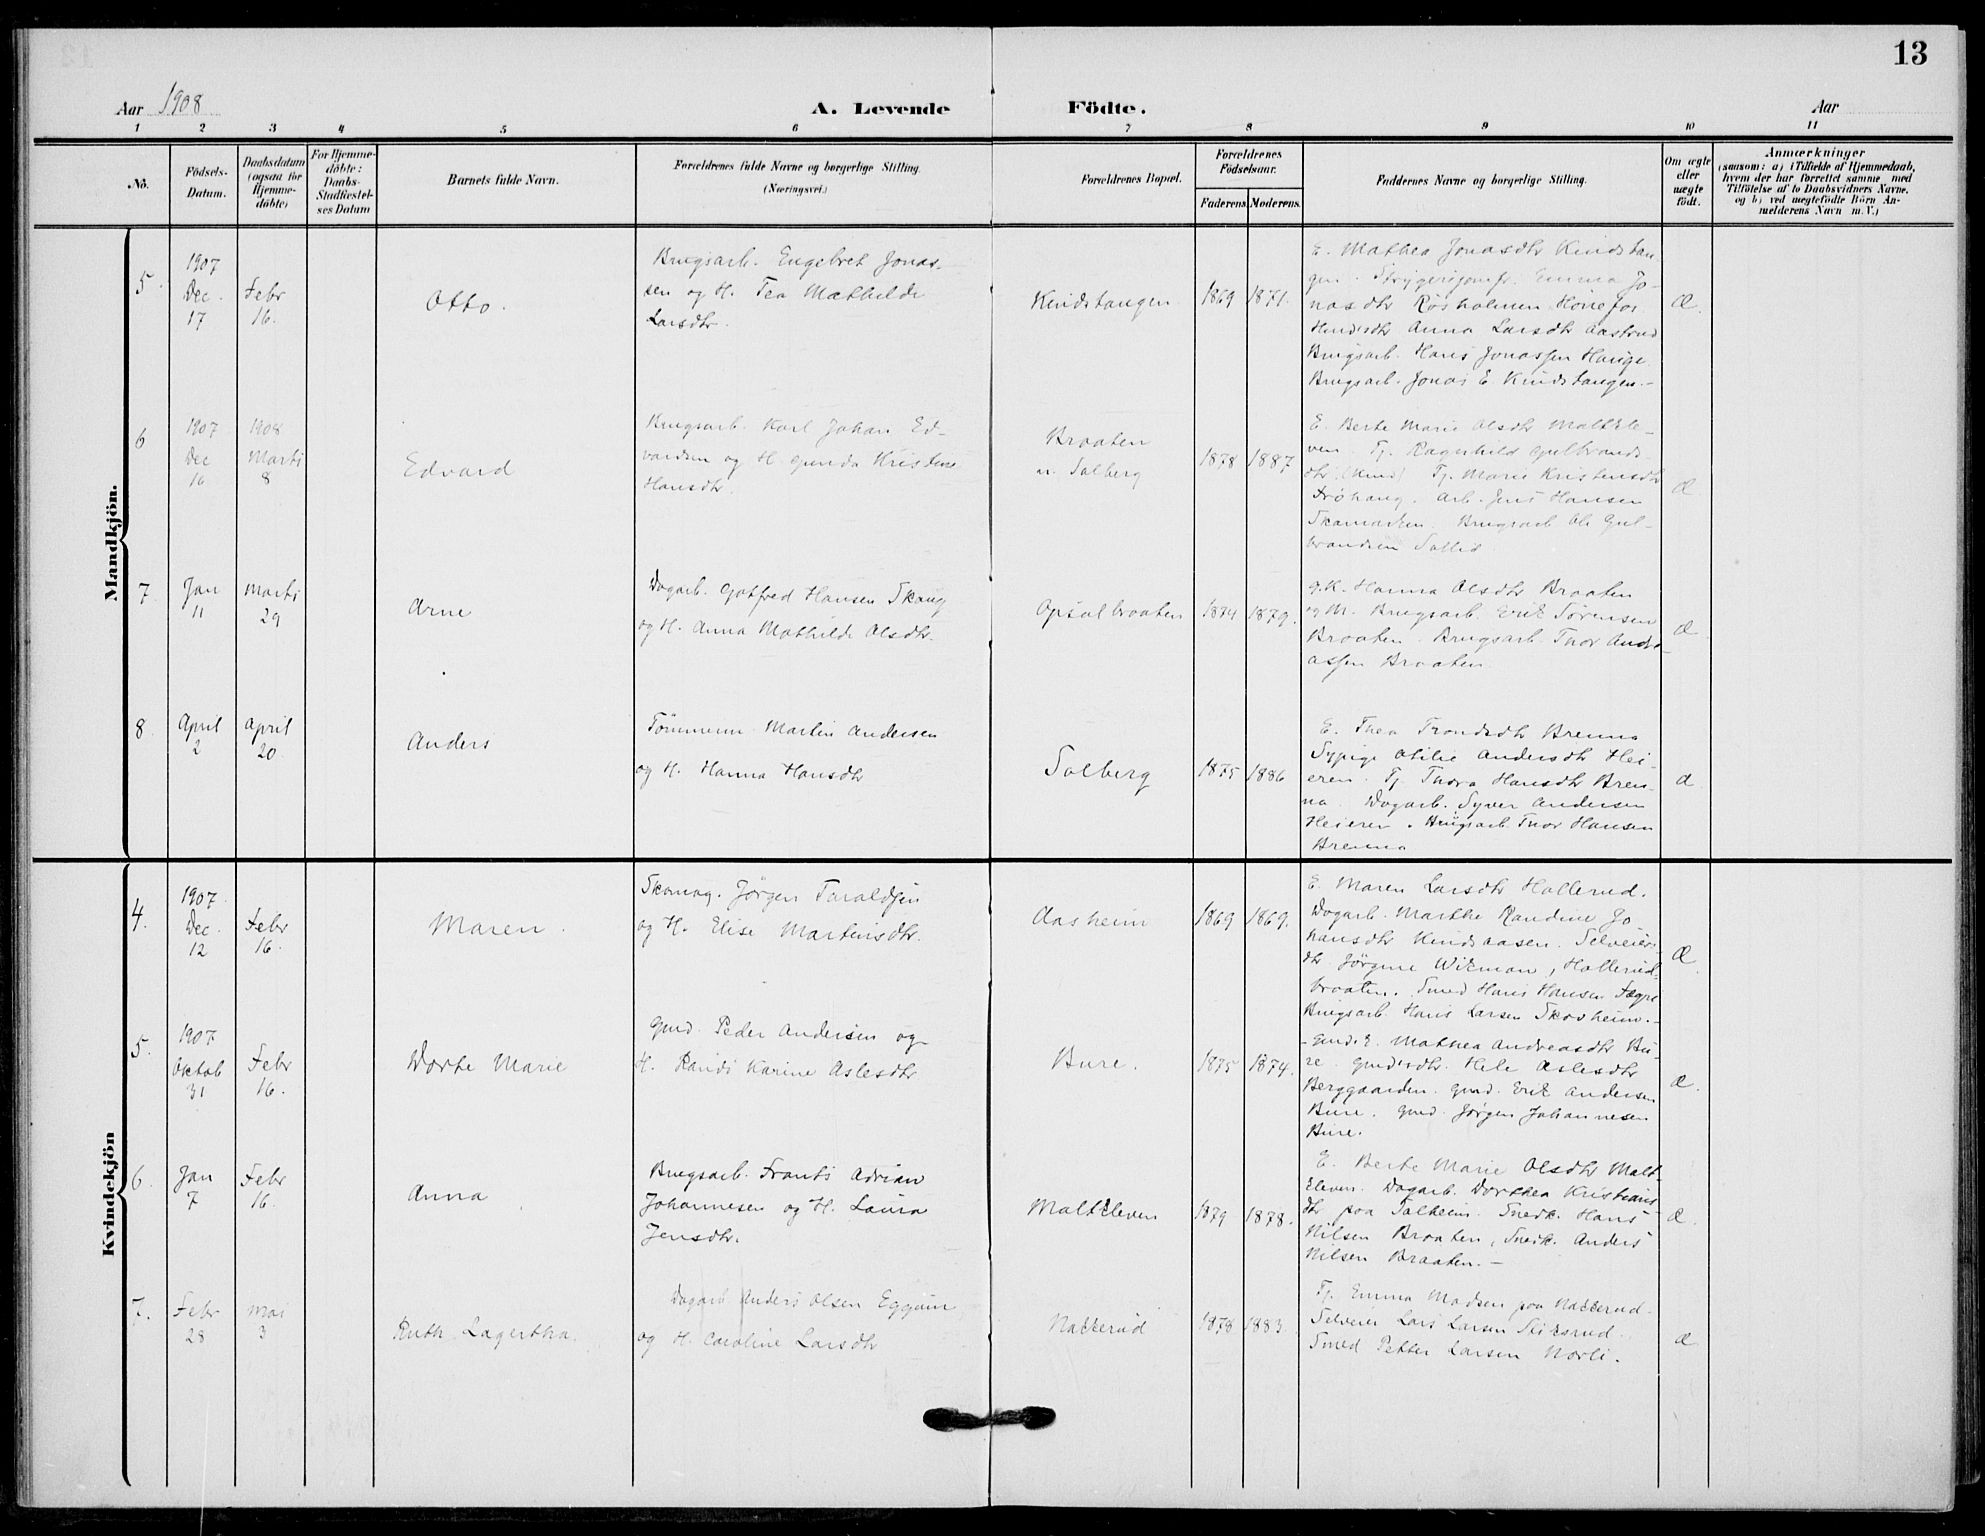 13
Aar 1908
A. Levende Födte.
Aar
1 2 3 4 5 6 7 8 9 10 11
No.
Födsels-
Datum.
Daabsdatum
(ogsaa for
Hjemme-
döbte)
For Hjemme-
döbte:
Daabs-
Stadfæstel-
ses Datum
Barnets fulde Navn.
Forældrenes fulde Navne og borgerlige Stilling.
(Næringsvei.)
Forældrenes Bopæl.
Forældrenes
Födselsaar.
Faderens. Moderens.
Faddernes Navne og borgerlige Stilling.
Om ægte
eller
uægte
født.
Anmærkninger
(saasom: a) i Tilfælde af Hjemmedaab,
hvem der har forrettet samme med
Tilföielse af to Daabsvidners Navne.
og b) ved uægtefödte Börn An-
melderens Navn m. V.)
Mandkjön.
5.
1907
Dec.
17
Febr
16.
Otto.
Brugsarb. Engebret Jonas-
sen og H. Tea Mathilde
Larsdtr.
Kindstangen
1869 1871.
E. Mathea Jonasdtr Kindstan-
gen. Strygersjomfr. Emma Jo-
nasdtr Røsholmen Hønefos
Anna Larsdtr Aastrud
Brugsarb. Hans Jonassen Hauge
Brugsarb. Jonas E. Kindstangen.-
Æ.
6
1907
Dec
16
1908
Marts
8
Edvard
Brugsarb. Karl Johan Ed-
vardsen og H. Gunda Kristine
Hansdtr.
Braaten
u. Solberg
1878 1887
E. Berte Marie Olsdtr Maltkle-
ven Tj. Ragnhild Gulbrands-
dtr. Tj. Marie Kristensdtr
Frøhaug. Arb. Jens Hansen
Skamarken. Brugsarb. Ole Gul-
brandsen Sollid
Æ
7.
Jan
11
Marts
29
Arne
Dagarb. Gotfred Hansen Skaug
og H. Anna Mathilde Olsdtr.
Opsalbraaten
1874 1879.
G.K. Hanna Olsdtr Braaten
og M. Brugsarb. Erik Sørensen
Braaten. Brugsarb. Thor Andre-
assen Braaten
Æ
8
April
2
April
20
Anders
Tömmerm. Martin Andersen
og H. Hanna Hansdtr
Solberg
1875 1886
E. Thea Trondsdtr Brenna
Sypige Otilie Andersdtr Hei-
eren. Tj. Thora Hansdtr Bren-
na. Dagarb. Syver Andersen
Heieren. Brugsarb. Thor Hansen
Brenna
Æ
Kvindekjön
4.
1907
Dec.
12
Febr
16.
Maren.
Skomag. Jørgen Taraldsen
og H. Elise Martinsdtr.
Aasheim
1869 1869.
E. Maren Larsdtr Hallerud.
Dagarb. Marthe Randine Jo-
hansdtr Kindsaasen. Selveier-
dtr Jørgine Wikman, Hallerud-
braaten. Smed Hans Hansen Fagre
Brugsarb. Hans Larsen Skovheim.-
Æ.
5.
1907
Oktob
31
Febr
16.
Dorte Marie
Gmd. Peder Andersen og
H. Randi Karine Aslesdtr
Bure.
1875 1874.
Gmd.E. Mathea Andreasdtr Bu-
re. Gmdsdtr. Hele Aslesdtr
Berggaarden. Gmd. Erik Andersen
Bure. Gmd. Jørgen Johannesen
Bure.
Æ.
6.
Jan
7
Febr
16.
Anna
Brugsarb. Frants Adrian
Johannesen og H. Laura
Jensdtr.
Maltkleven
1879 1878.
E. Berte Marie Olsdtr Malt-
kleven. Dagarb. Dorthea Kristians-
dtr paa Solheim. Snedk. Hans
Nilsen Braaten, Snedk. Anders
Nilsen Braaten.-
Æ.
7.
Febr
28
Mai
3
Ruth Lagertha.
Dagarb Anders Olsen Eggum
og H. Caroline Larsdtr
Nakkerud
1878 1883.
Tj. Emma Madsen paa Nakkerud.
Selveier Lars Larsen Stiksrud.
Smed Petter Larsen Norli.
Æ